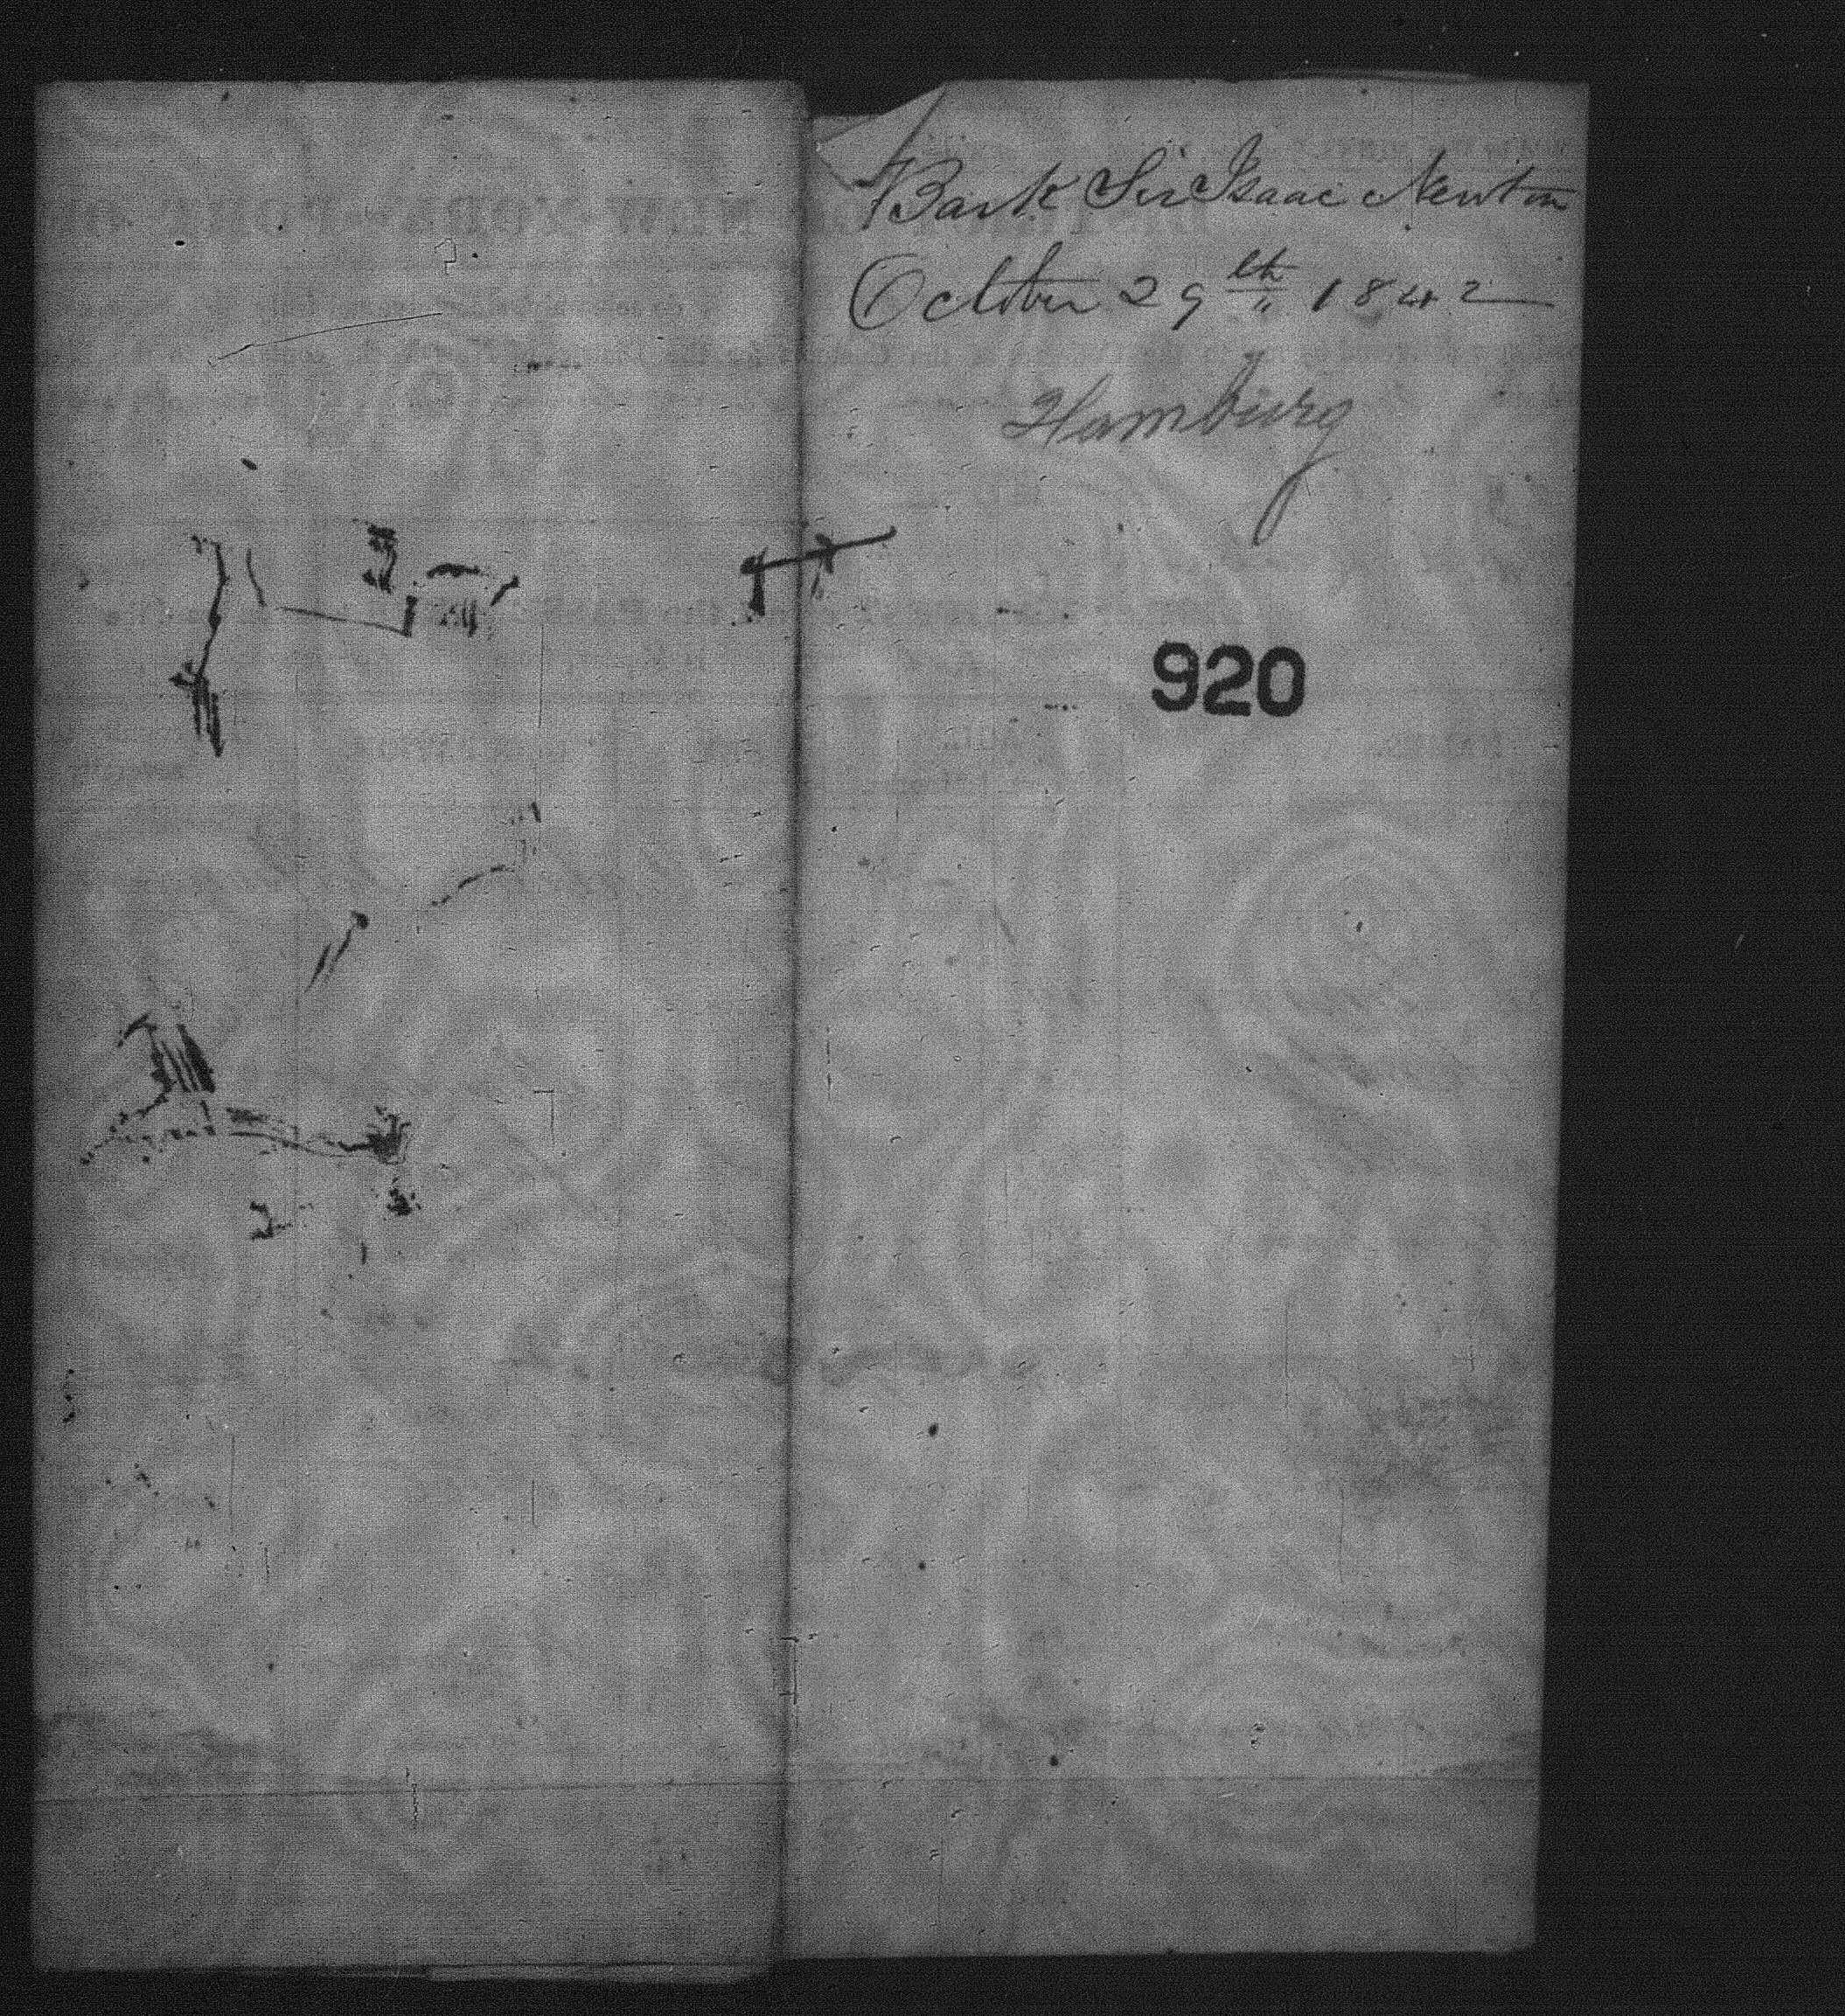 Bark Sir Isaac Newton
October 29th 1842
Hamburg
920